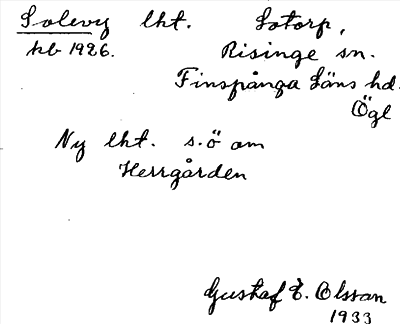 Solevy lht. Sotorp,
kb 1926. Risinge sn.
Finspånga Läns hd.
Ögl
Ny lht. s.ö om
Herrgården
Gustaf E. Olsson
1933